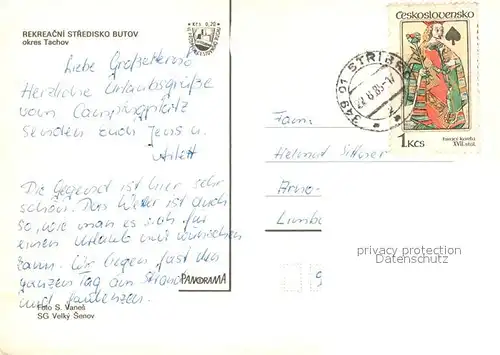 REKREAČNÍ STŘEDISKO BUTOV
okres Tachov
Kčs 0,20
Liebe Großeltern!
Herzliche Urlaubsgrüße
vom Campingplatz
senden euch Jens u.
Die Gegend ist hier sehr
schön. Das Wetter ist auch
so, wie man es sich für
einen Urlaub nur wünschen
kann. Wir liegen fast den
ganzen Tag am Strand
und faulenzen.
PANORAMA
Foto S. Vaneš
SG Velký Šenov
Československo
1 Kčs
XVII. stol.
349 01 STŘÍBRO
Fam.
Helmut
Arno-
Limba
privacy protection
Datenschutz